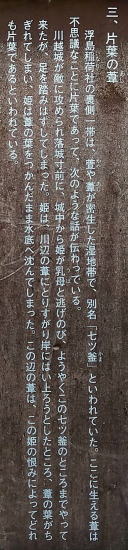 三、片葉の葦
浮島稲荷社の裏側一帯は、萱や葦が密生した湿地帯で、別名「七ツ釜」といわれていた。ここに生える葦は
不思議なことに片葉であって、次のような話が伝わっている。
川越城が敵に攻められ落城寸前に、城中から姫が乳母と逃げのび、ようやくこの七ツ釜のところまでやって
来たが、足を踏みはずしてしまった。姫は、川辺の葦にとりすがり岸にはい上ろうとしたところ、葦の葉がち
ぎれてしまい、姫は葦の葉をつかんだまま水底へ沈んでしまった。この辺の葦は、この姫の恨みによってどれ
も片葉であるといわれている。